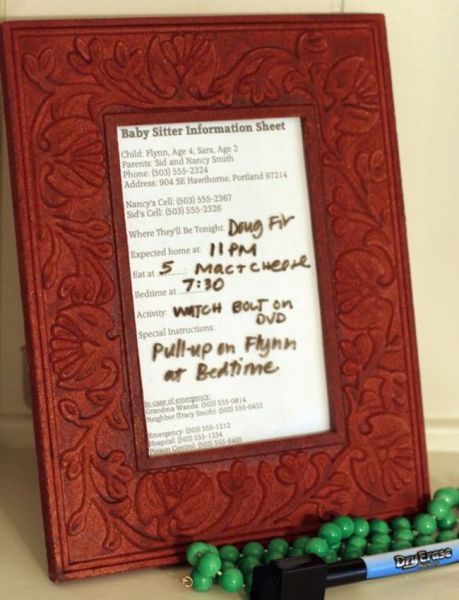 Baby Sitter Information Sheet
Child: Flynn, Age 4; Sara, Age 2
Parents: Sid and Nancy Smith
Phone: (503) 555-2324
Address: 904 SE Hawthorne, Portland 97214
Nancy's Cell: (503) 555-2367
Sid's Cell: (503) 555-2326
Where They'll Be Tonight: Doug Fir
Expected home at: 11 PM
Eat at 5 Mac + Cheese
Bedtime at 7:30
Activity: WATCH BOLT on
DVD
Special Instructions:
Pull-up on Flynn
at Bedtime
In case of emergency:
Grandma Wanda: (503) 555-0814
Neighbor (Tracy Smith): (503) 555-0432
Emergency: (503) 555-1212
Hospital: (503) 555-1234
Poison Control: (503) 555-6465
Dry Erase